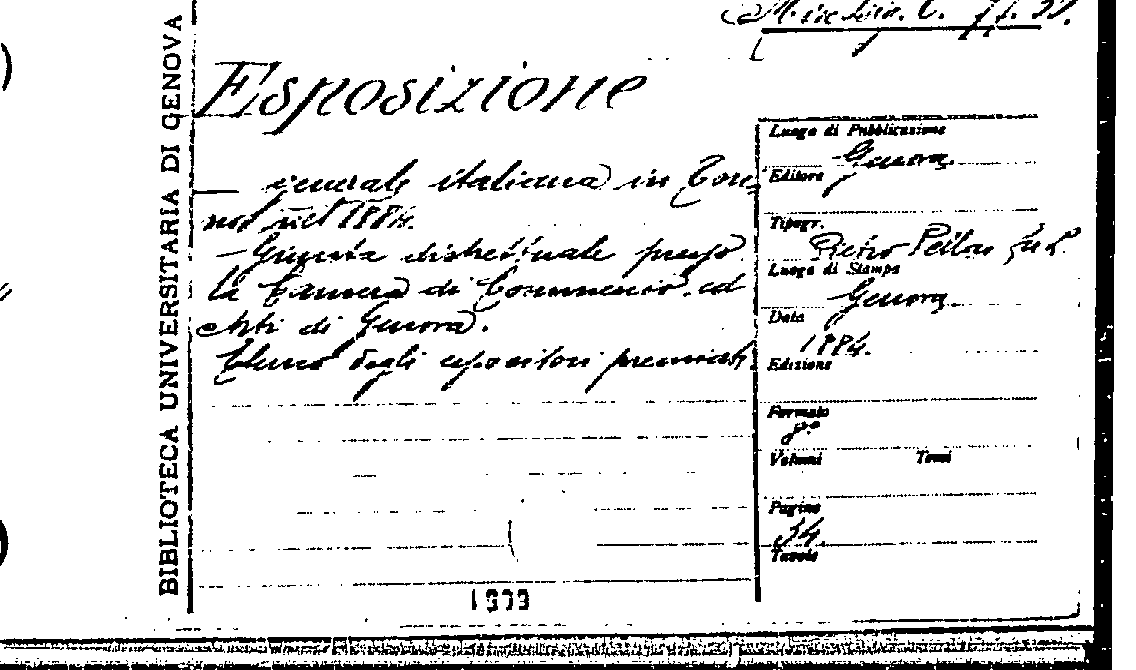 Miscellan. C. 77. 32.
BIBLIOTECA UNIVERSITARIA DI GENOVA
Esposizione
— generale italiana in Tori-
no nel 1884.
— Giunta distrettuale presso
la Camera di Commercio ed
Arti di Genova.
Elenco degli espositori premiati.
Luogo di Pubblicazione
Genova
Editore
Tipogr.
Pietro Pellas fu L.
Luogo di Stampa
Genova
Data
1884.
Edizione
Formato
8°
Volumi Tomi
Pagine
34.
Tavole